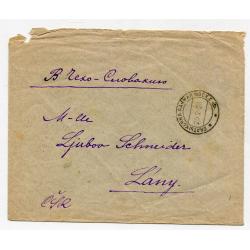 В Чехо-Словакию
M-lle
Ljubov Schneider
Lány.
ČSR